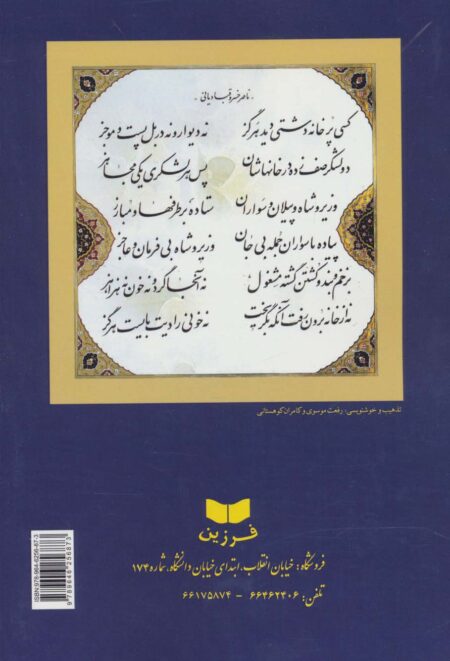 ناصر خسرو قبادیانی
کسی پرخانه دشتی دید هرگز نه دیوار و نه در بل پست و موجز
دو لشکر صف زده در خانهاشان پس هر لشکری یکی مجاهز
وزیر و شاه و پیلان و سواران ستاده بر طرفها و مبارز
پیاده با سواران جمله بی جان وزیر و شاه بی فرمان و عاجز
بزخم و بند و کشتن گشته مشغول نه آنجا گرد و نه خون و نه هزاهز
نه از خانه برون رفت آنکه بگریخت نه خونی را دیت بایست هرگز
تذهیب و خوشنویسی: رفعت موسوی و کامران کوهستانی
فرزین
فروشگاه: خیابان انقلاب، ابتدای خیابان دانشگاه، شماره ۱۷۴
تلفن: ۶۶۴۶۲۴۰۶ - ۶۶۱۷۵۸۷۴
ISBN 978-964-6256-87-3
9789646256873